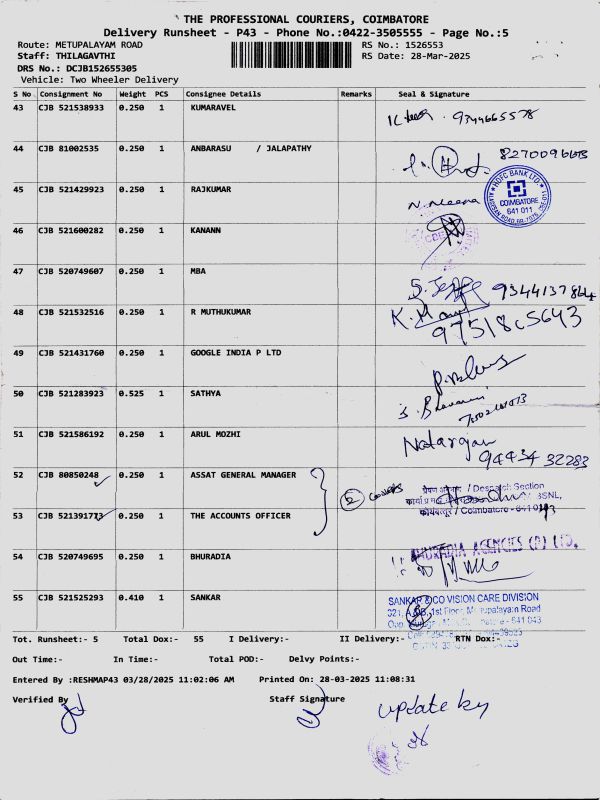 THE PROFESSIONAL COURIERS, COIMBATORE
Delivery Runsheet - P43 - Phone No.:0422-3505555 - Page No.:5
Route: METUPALAYAM ROAD RS No.: 1526553
Staff: THILAGAVTHI RS Date: 28-Mar-2025
DRS No.: DCJB152655305
Vehicle: Two Wheeler Delivery
S No Consignment No Weight PCS Consignee Details Remarks Seal & Signature
43 CJB 521538933 0.250 1 KUMARAVEL 9344665578
44 CJB 81002535 0.250 1 ANBARASU / JALAPATHY
HDFC BANK LTD.
COIMBATORE
641 011
45 CJB 521429923 0.250 1 RAJKUMAR N. Neena
46 CJB 521600282 0.250 1 KANANN
47 CJB 520749607 0.250 1 MBA 9344137864
48 CJB 521532516 0.250 1 R MUTHUKUMAR
49 CJB 521431760 0.250 1 GOOGLE INDIA P LTD
50 CJB 521283923 0.525 1 SATHYA
51 CJB 521586192 0.250 1 ARUL MOZHI Natarajan
94434 32283
52 CJB 80850248 0.250 1 ASSAT GENERAL MANAGER / Despatch Section
BSNL,
53 CJB 521391773 0.250 1 THE ACCOUNTS OFFICER कोयंबत्तूर / Coimbatore - 641 043
54 CJB 520749695 0.250 1 BHURADIA BHURADIA AGENCIES (P) LTD.
55 CJB 521525293 0.410 1 SANKAR SANKAR & CO VISION CARE DIVISION
1st Floor, Mettupalayam Road
641 043
Tot. Runsheet:- 5 Total Dox:- 55 I Delivery:- II Delivery:- RTN Dox:-
Out Time:- In Time:- Total POD:- Delvy Points:-
Entered By :RESHMAP43 03/28/2025 11:02:06 AM Printed On: 28-03-2025 11:08:31
Verified By Staff Signature update by